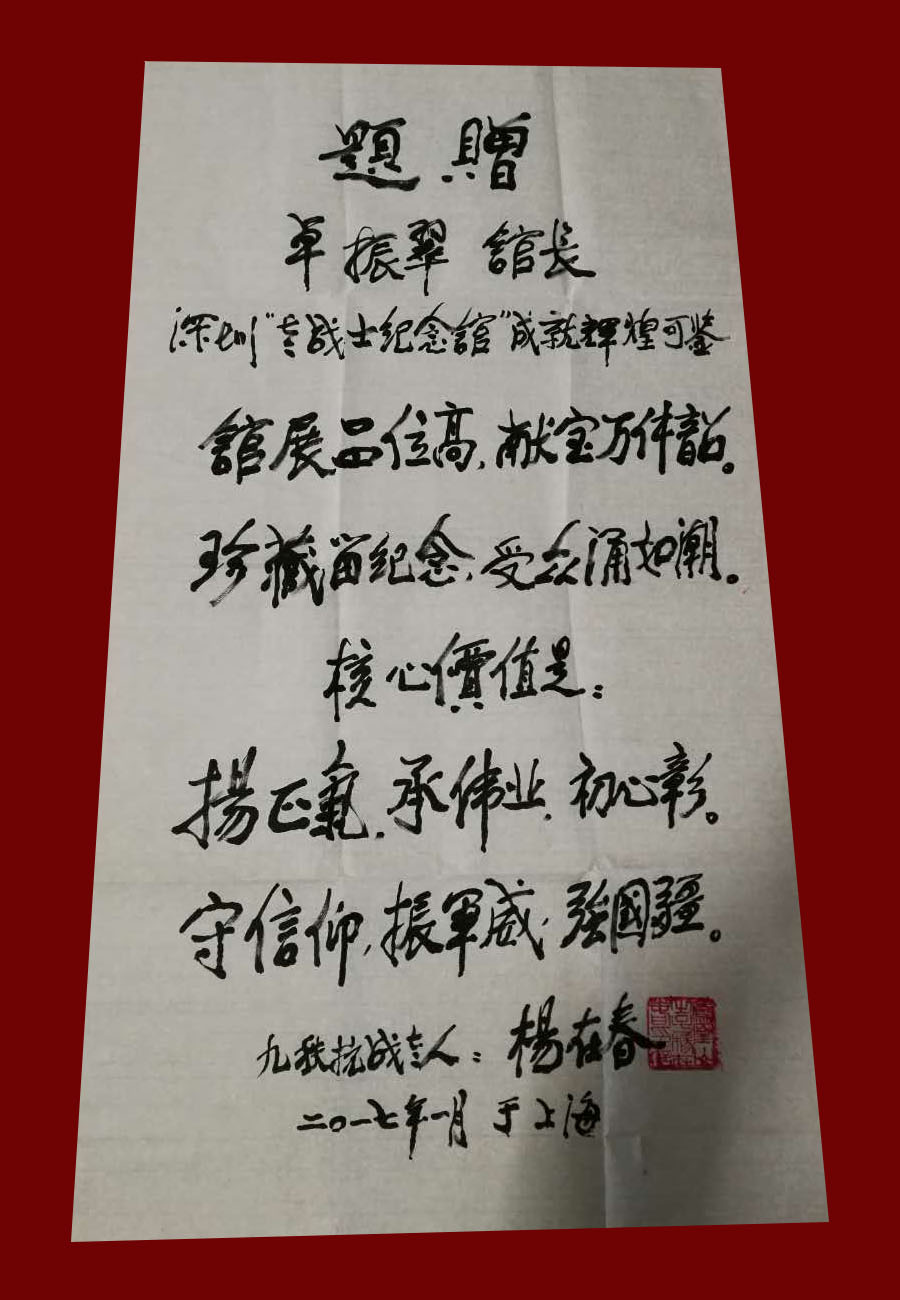 題 贈
卓振翠 舘長
深圳"老战士纪念舘"成就輝煌可鉴
舘展品位高,献宝万件韵。
珍藏留纪念,受众涌如潮。
核心價值是:
揚正氣,承伟业,初心彰。
守信仰,振軍威,強國疆。
九秩抗战老人:楊在春
二〇一七年一月 于上海